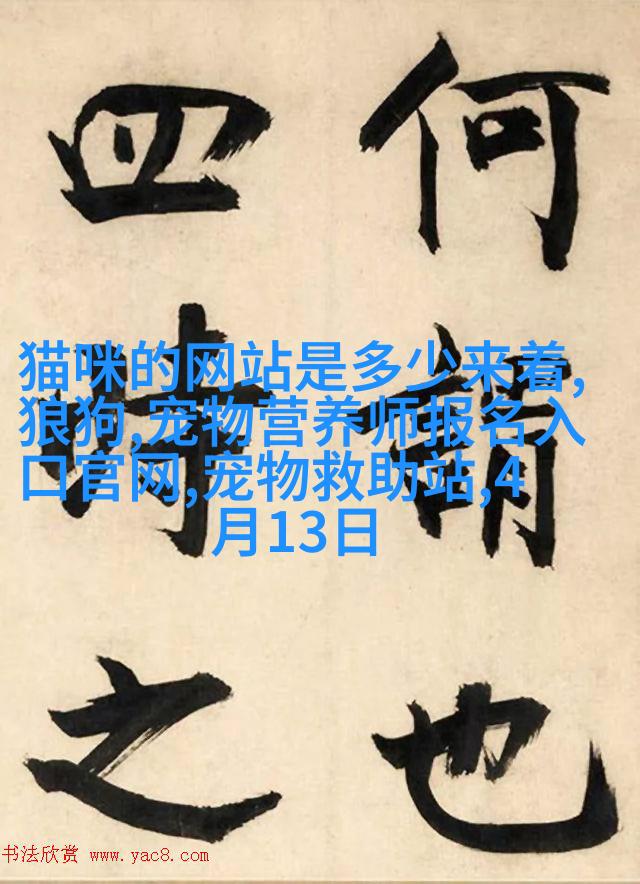 何謂也
四時之
猫咪的网站是多少来着,
狼狗,宠物营养师报名入
口官网,宠物救助站,4
月13日
书法欣赏 www.yac8.com